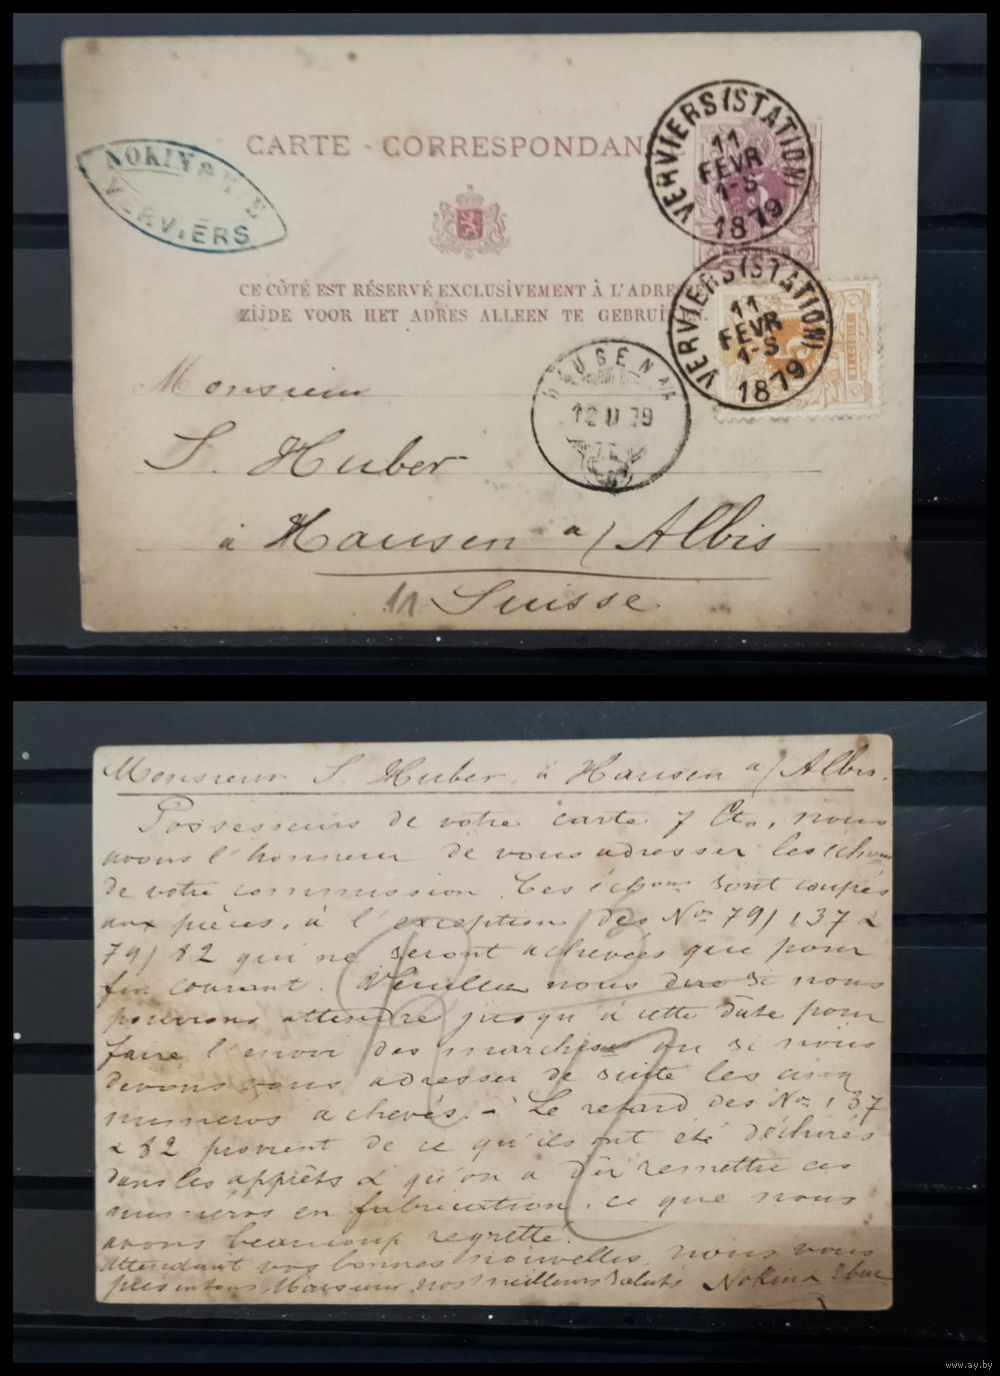 NOKIN & CIE
VERVIERS
CARTE - CORRESPONDAN
VERVIERS (STATION)
11
FEVR
1-S
1879
5
CE CÔTÉ EST RÉSERVÉ EXCLUSIVEMENT À L'ADRE
ZIJDE VOOR HET ADRES ALLEEN TE GEBRUI
VERVIERS (STATION)
11
FEVR
1-S
1879
5
BELGIQUE
12 II 79
Monsieur
S. Huber
à Hausen a/ Albis
Suisse
Monsieur S. Huber à Hausen a/ Albis.
Possesseurs de votre carte 7 Ct., nous
avons l'honneur de vous adresser les échons
de votre commission. Ces échons sont coupés
aux pièces, à l'exception des Nos 79/137 &
79/82 qui ne seront achevées que pour
fin courant. Veuillez nous dire si nous
pouvons attendre jusqu'à cette date pour
faire l'envoi des marchises ou si nous
devons vous adresser de suite les cinq
numéros achevés. - Le retard des Nos 137
& 82 provient de ce qu'ils ont été déchirés
dans les apprêts & qu'on a dû remettre ces
numéros en fabrication, ce que nous
avons beaucoup regretté.
attendant vos bonnes nouvelles, nous vous
présentons, Monsieur, nos meilleurs saluts Nokin &
www.ay.by